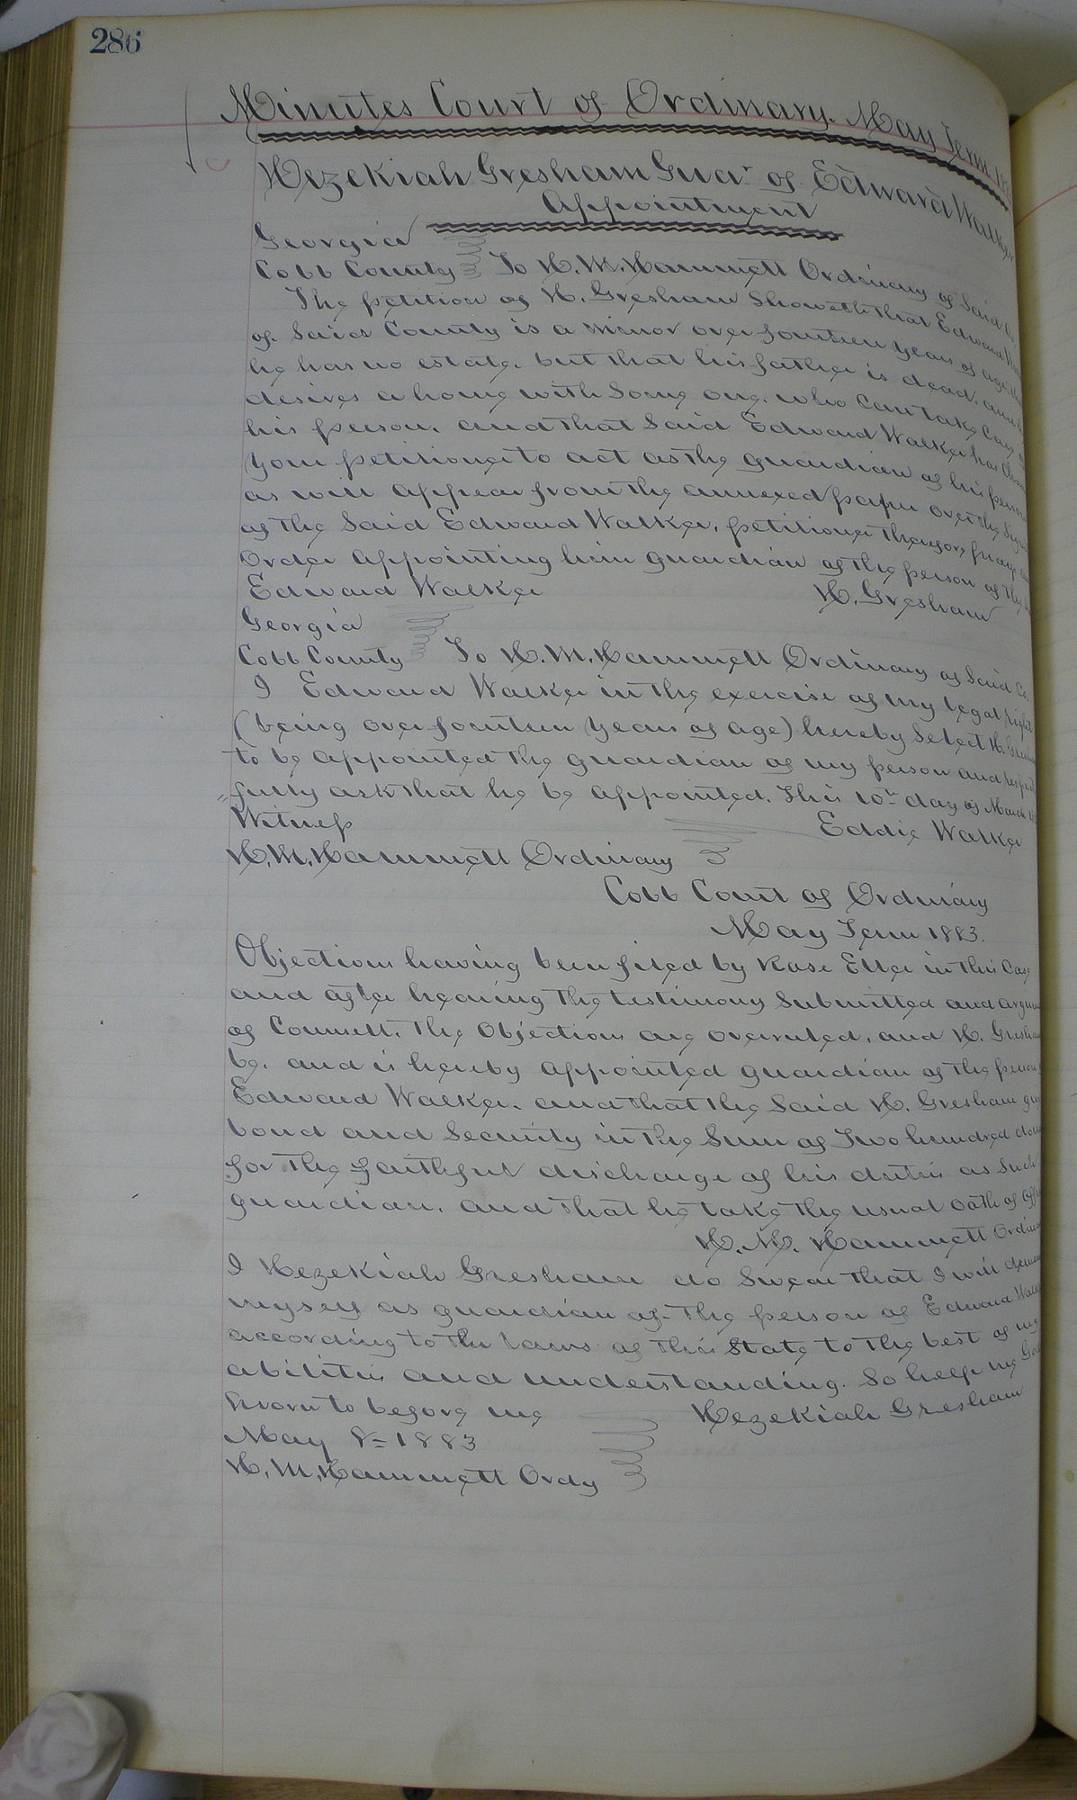 286
Minutes Court of Ordinary. May Term
Hezekiah Gresham Guar of Edward Walker
Appointment
Georgia
Cobb County To H. M. Hammett Ordinary of Said Co
The petition of H. Gresham Showeth that Edward
of Said County is a minor over fourteen years of age
he has no estate. but that his father is dead. and
desires a home with Some one. who Can take Care
his person. and that Said Edward Walker has
your petitioner to act as the guardian of his person
as will appear from the annexed paper over the
of the Said Edward Walker, petitioner therefore prays
Order appointing him guardian of the person of the
Edward Walker H. Gresham
Georgia
Cobb County To H. M. Hammett Ordinary of Said Co
I Edward Walker in the exercise of my legal right
(being over fourteen years of age) hereby Select H.
to be appointed the guardian of my person and
fully ask that he be appointed. This 10th day of March
Witness Eddie Walker
H. M. Hammett Ordinary
Cobb Court of Ordinary
May Term 1883.
Objections having been filed by Rose Eller in this Case
and after hearing the testimony Submitted and
of Counsell. The Objections are overruled. and H. Gresham
be. and is hereby appointed guardian of the person
Edward Walker. and that the Said H. Gresham
bond and Security in the Sum of Two hundred
for the faithful discharge of his duties as Such
guardian. and that he take the usual oath of
H. M. Hammett
I Hezekiah Gresham do Swear that I will
myself as guardian of the person of Edward
according to the laws of this State to the best of my
abilities and understanding. So help me God
Sworn to before me Hezekiah Gresham
May 8= 1883
H. M. Hammett Ordy